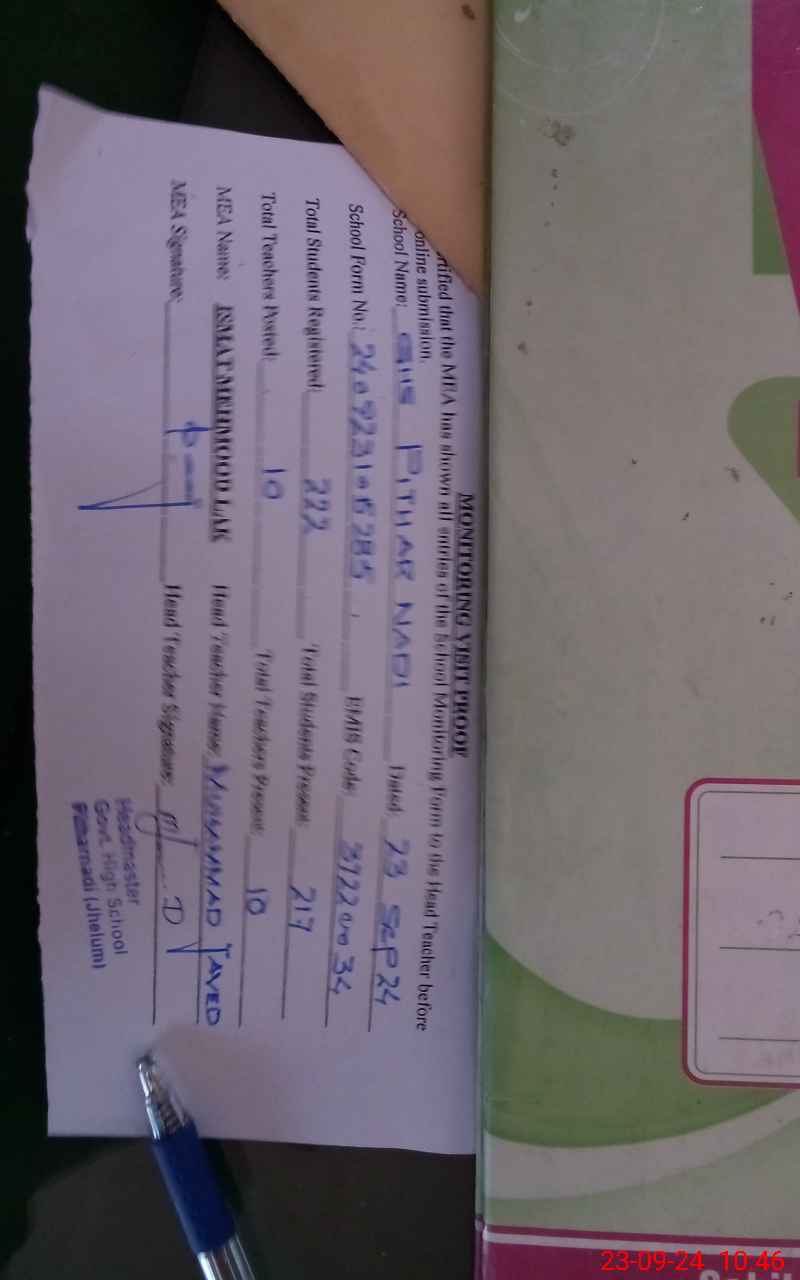 MONITORING VISIT PROOF
rtified that the MEA has shown all entries of the School Monitoring Form to the Head Teacher before
online submission.
School Name: GHS PITHAR NADI Dated: 23 Sep 24
School Form No.: 240923106285 EMIS Code: 37220034
Total Students Registered: 222 Total Students Present: 217
Total Teachers Posted: 10 Total Teachers Present: 10
MEA Name: ISMAT MEHMOOD LAK Head Teacher Name: MUHAMMAD JAVED
MEA Signature: Head Teacher Signature:
Headmaster
Govt. High School
Pitharnadi (Jhelum)
23-09-24 10:46